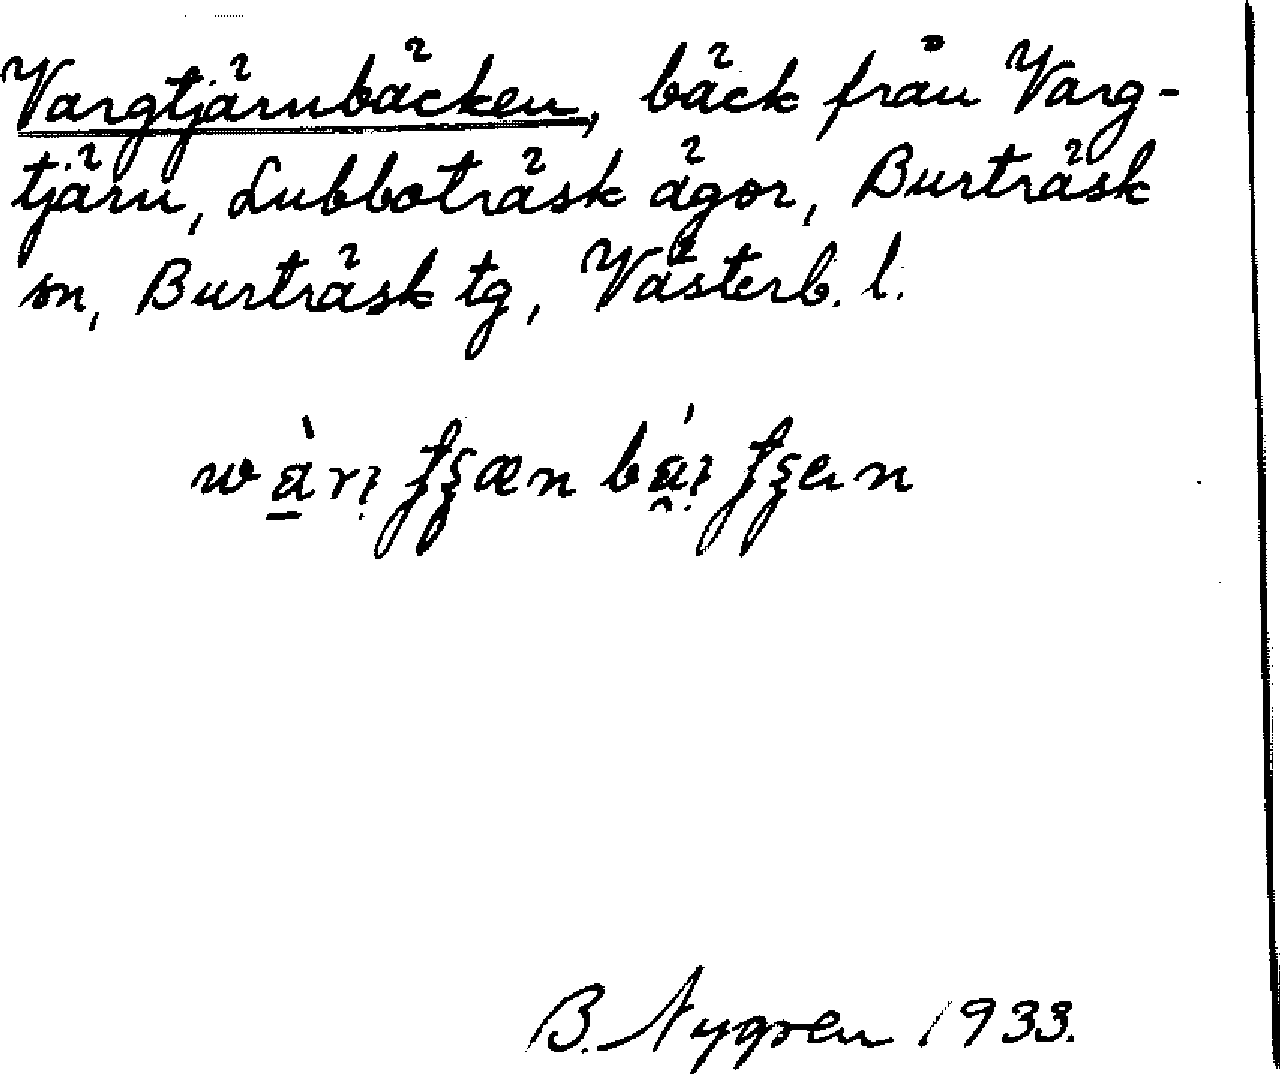 Vargtjärnbäcken, bäck från Varg-
tjärn, Lubboträsk ägor, Burträsk
sn, Burträsk tg, Västerb. l.
B. Nygren 1933.